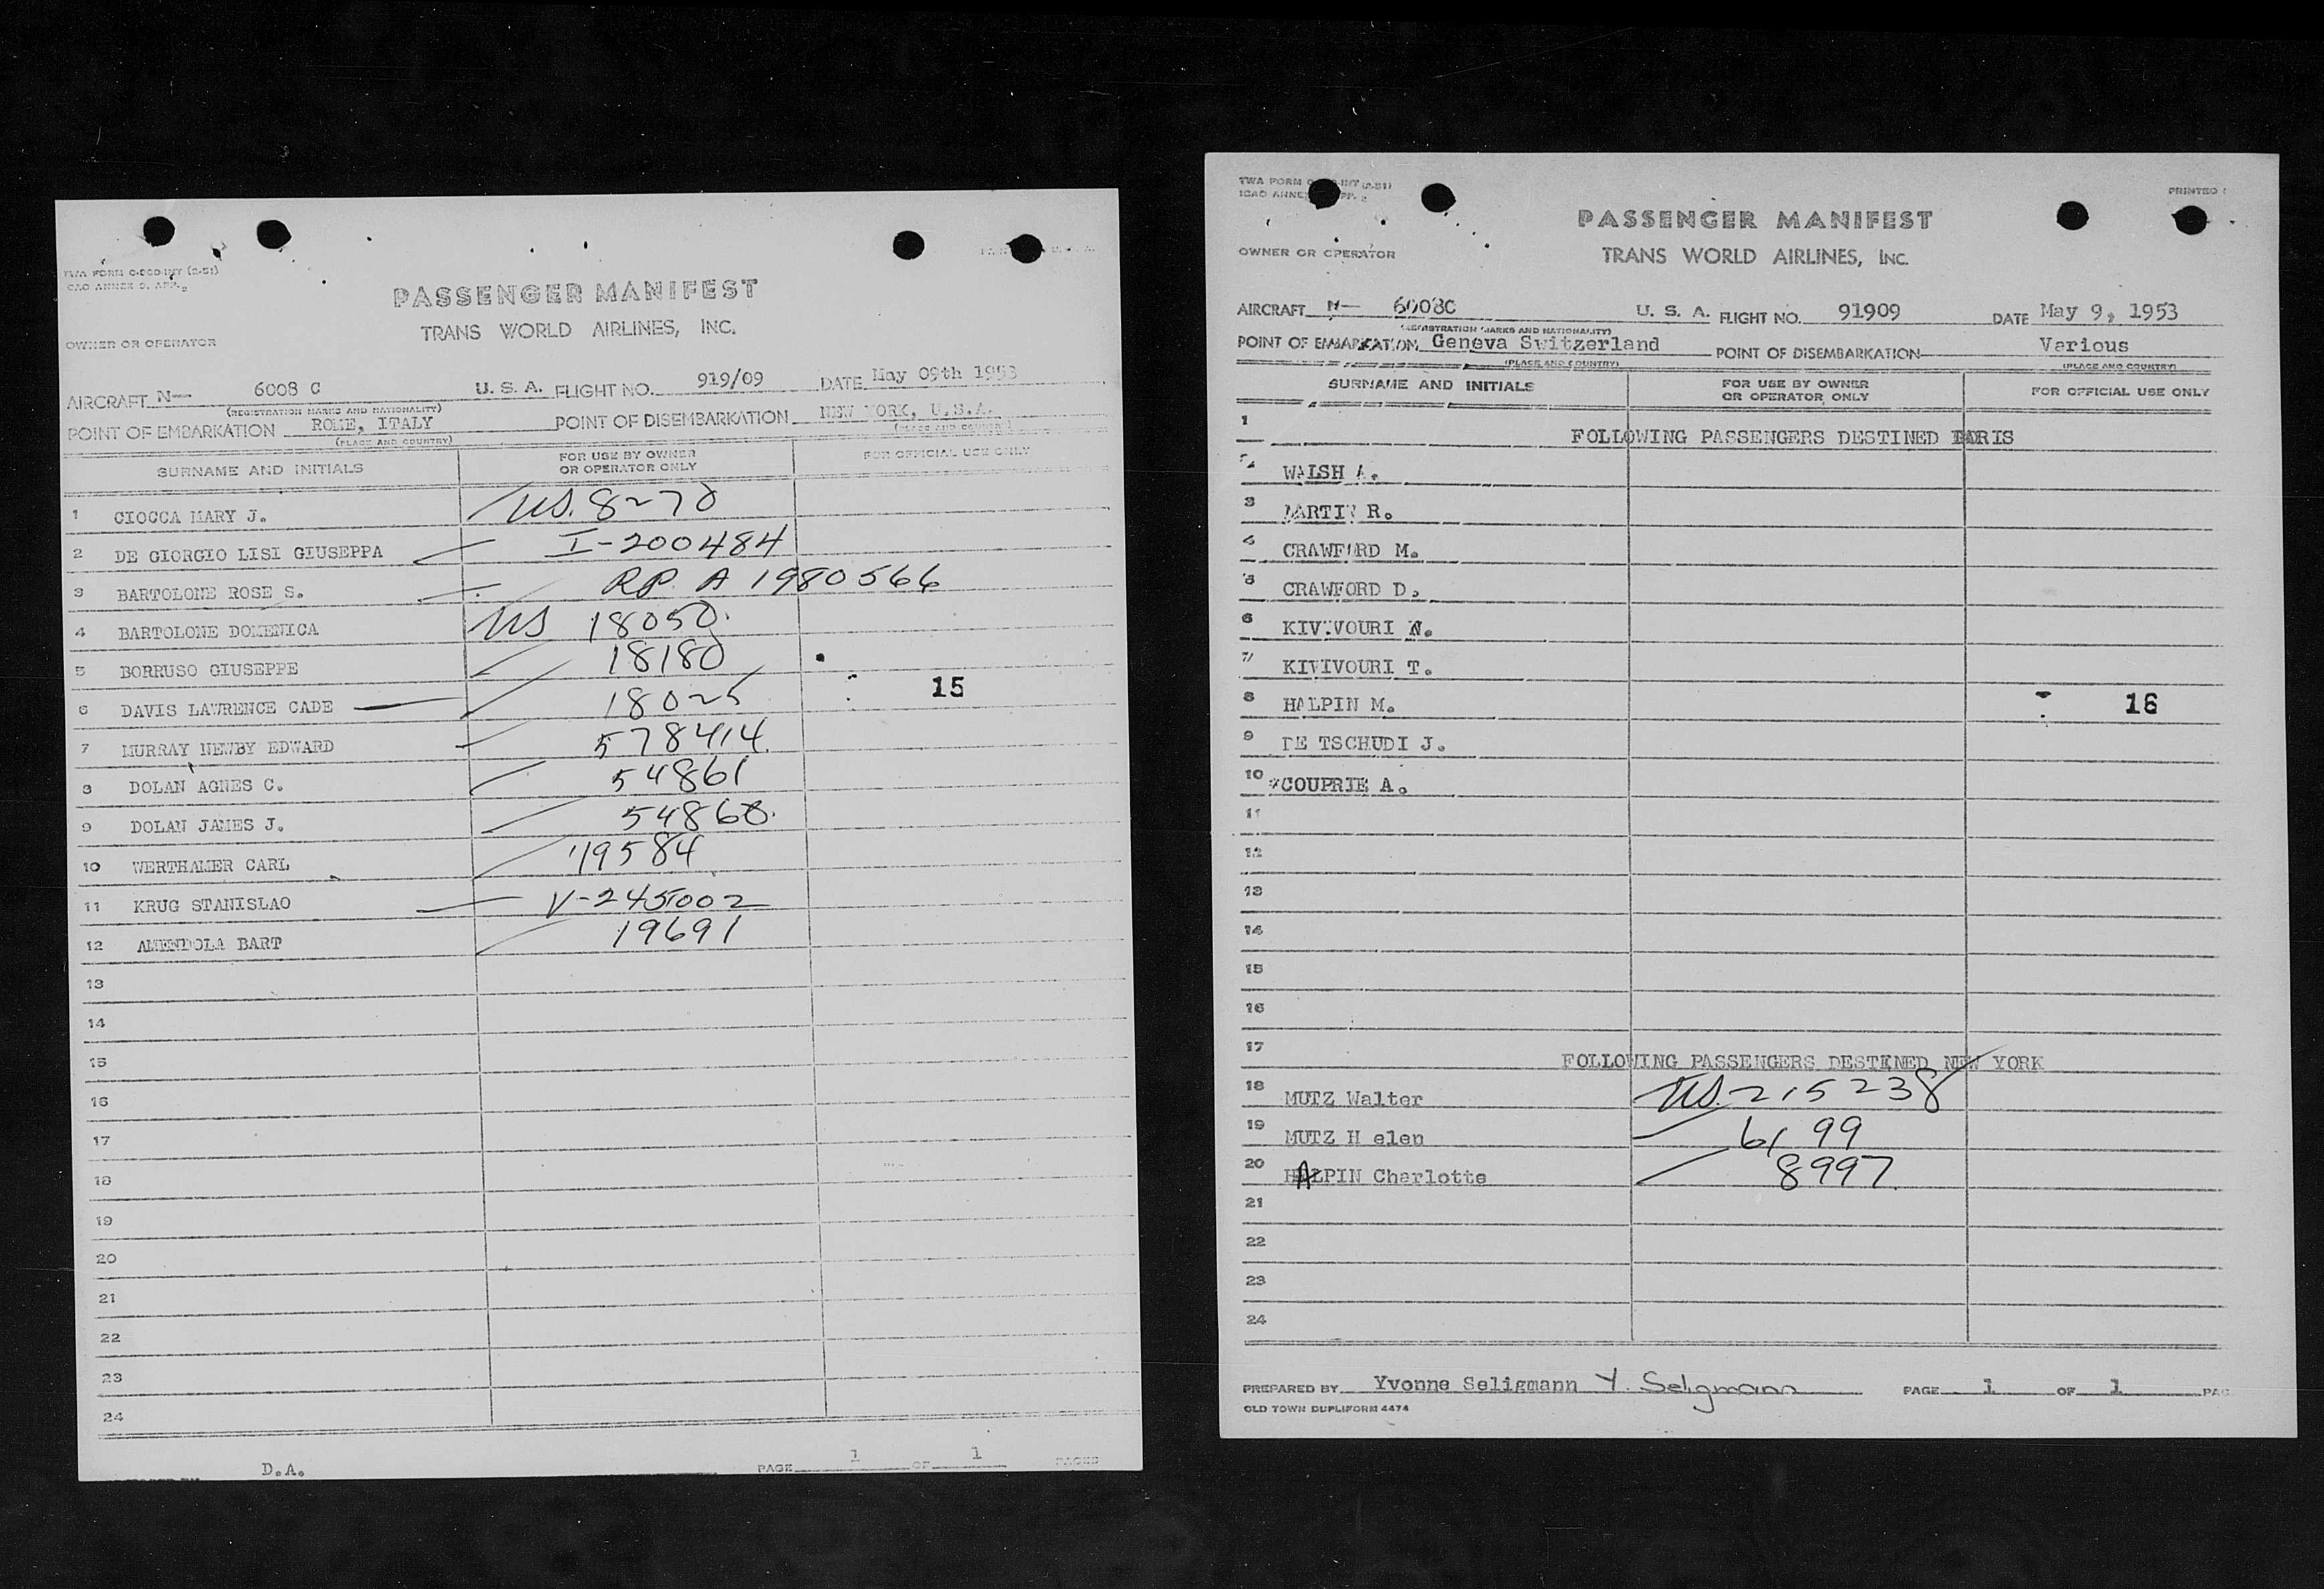 TWA FORM O-860-INT (2-51)
ICAO ANNEX 9, APP. 2
PASSENGER MANIFEST
TRANS WORLD AIRLINES, INC.
OWNER OR OPERATOR
AIRCRAFT N— 6008 C U. S. A. FLIGHT NO. 919/09 DATE May 09th 1953
(REGISTRATION MARKS AND NATIONALITY)
POINT OF EMBARKATION ROME, ITALY POINT OF DISEMBARKATION NEW YORK, U.S.A.
(PLACE AND COUNTRY) (PLACE AND COUNTRY)
SURNAME AND INITIALS FOR USE BY OWNER OR OPERATOR ONLY FOR OFFICIAL USE ONLY
1 CIOCCA MARY J. US. 8270
2 DE GIORGIO LISI GIUSEPPA I-200484
3 BARTOLONE ROSE S. RP. A 1980566
4 BARTOLONE DOMENICA US 18050
5 BORRUSO GIUSEPPE 18180
6 DAVIS LAWRENCE CADE 18025 15
7 MURRAY NEWBY EDWARD 578414
8 DOLAN AGNES C. 54861
9 DOLAN JAMES J. 54860.
10 WERTHAMER CARL 19584
11 KRUG STANISLAO V-245002
12 AMENDOLA BART 19691
13
14
15
16
17
18
19
20
21
22
23
24
D.A. PAGE 1 OF 1 PAGES
TWA FORM (2-51)
ICAO ANNEX APP. 2
PRINTED
PASSENGER MANIFEST
OWNER OR OPERATOR TRANS WORLD AIRLINES, INC.
AIRCRAFT N— 6008C U. S. A. FLIGHT NO. 91909 DATE May 9, 1953
(REGISTRATION MARKS AND NATIONALITY)
POINT OF EMBARKATION Geneva Switzerland POINT OF DISEMBARKATION Various
(PLACE AND COUNTRY) (PLACE AND COUNTRY)
SURNAME AND INITIALS FOR USE BY OWNER OR OPERATOR ONLY FOR OFFICIAL USE ONLY
1 FOLLOWING PASSENGERS DESTINED PARIS
2 WALSH A.
3 MARTIN R.
4 CRAWFORD M.
5 CRAWFORD D.
6 KIVIVOURI N.
7 KIVIVOURI T.
8 HALPIN M. 16
9 DE TSCHUDI J.
10 COUPRIE A.
11
12
13
14
15
16
17 FOLLOWING PASSENGERS DESTINED NEW YORK
18 MUTZ Walter US. 215238
19 MUTZ H elen 6199
20 HALPIN Charlotte 8997
21
22
23
24
PREPARED BY Yvonne Seligmann Y. Seligmann PAGE 1 OF 1 PAG
OLD TOWN DUPLIFORM 4474